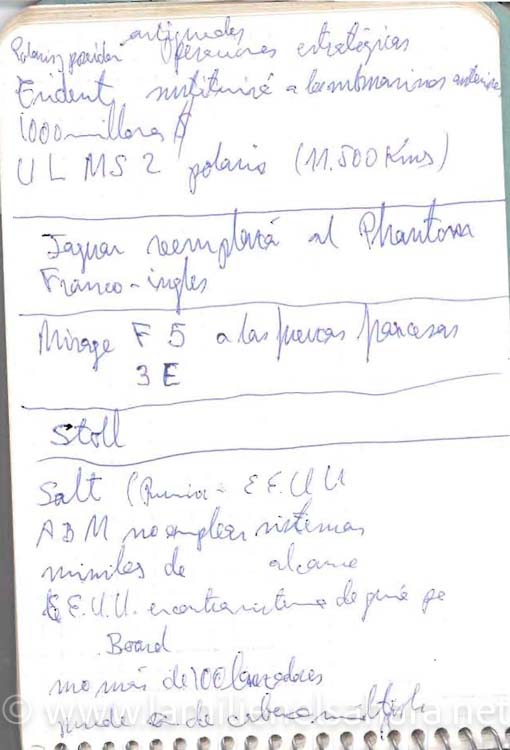 antiguedes
Polaris poseidon Operaciones estratégicas
Trident sustituirá a los submarinos anteriores
1000 millones $
U L M S 2 polaris (11.500 Kms)
Jaguar reemplazá al Phantom
Franco-ingles
Mirage F 5 a las fuerzas francesas
3 E
Stoll
Salt (Rusia - E E. U U
A B M no emplear sistemas
misiles de alcance
E E. U. U. en contra sistema de
Board
no más de 100 lanzadores
© www.lamilianelsahara.net
puede de cabeza